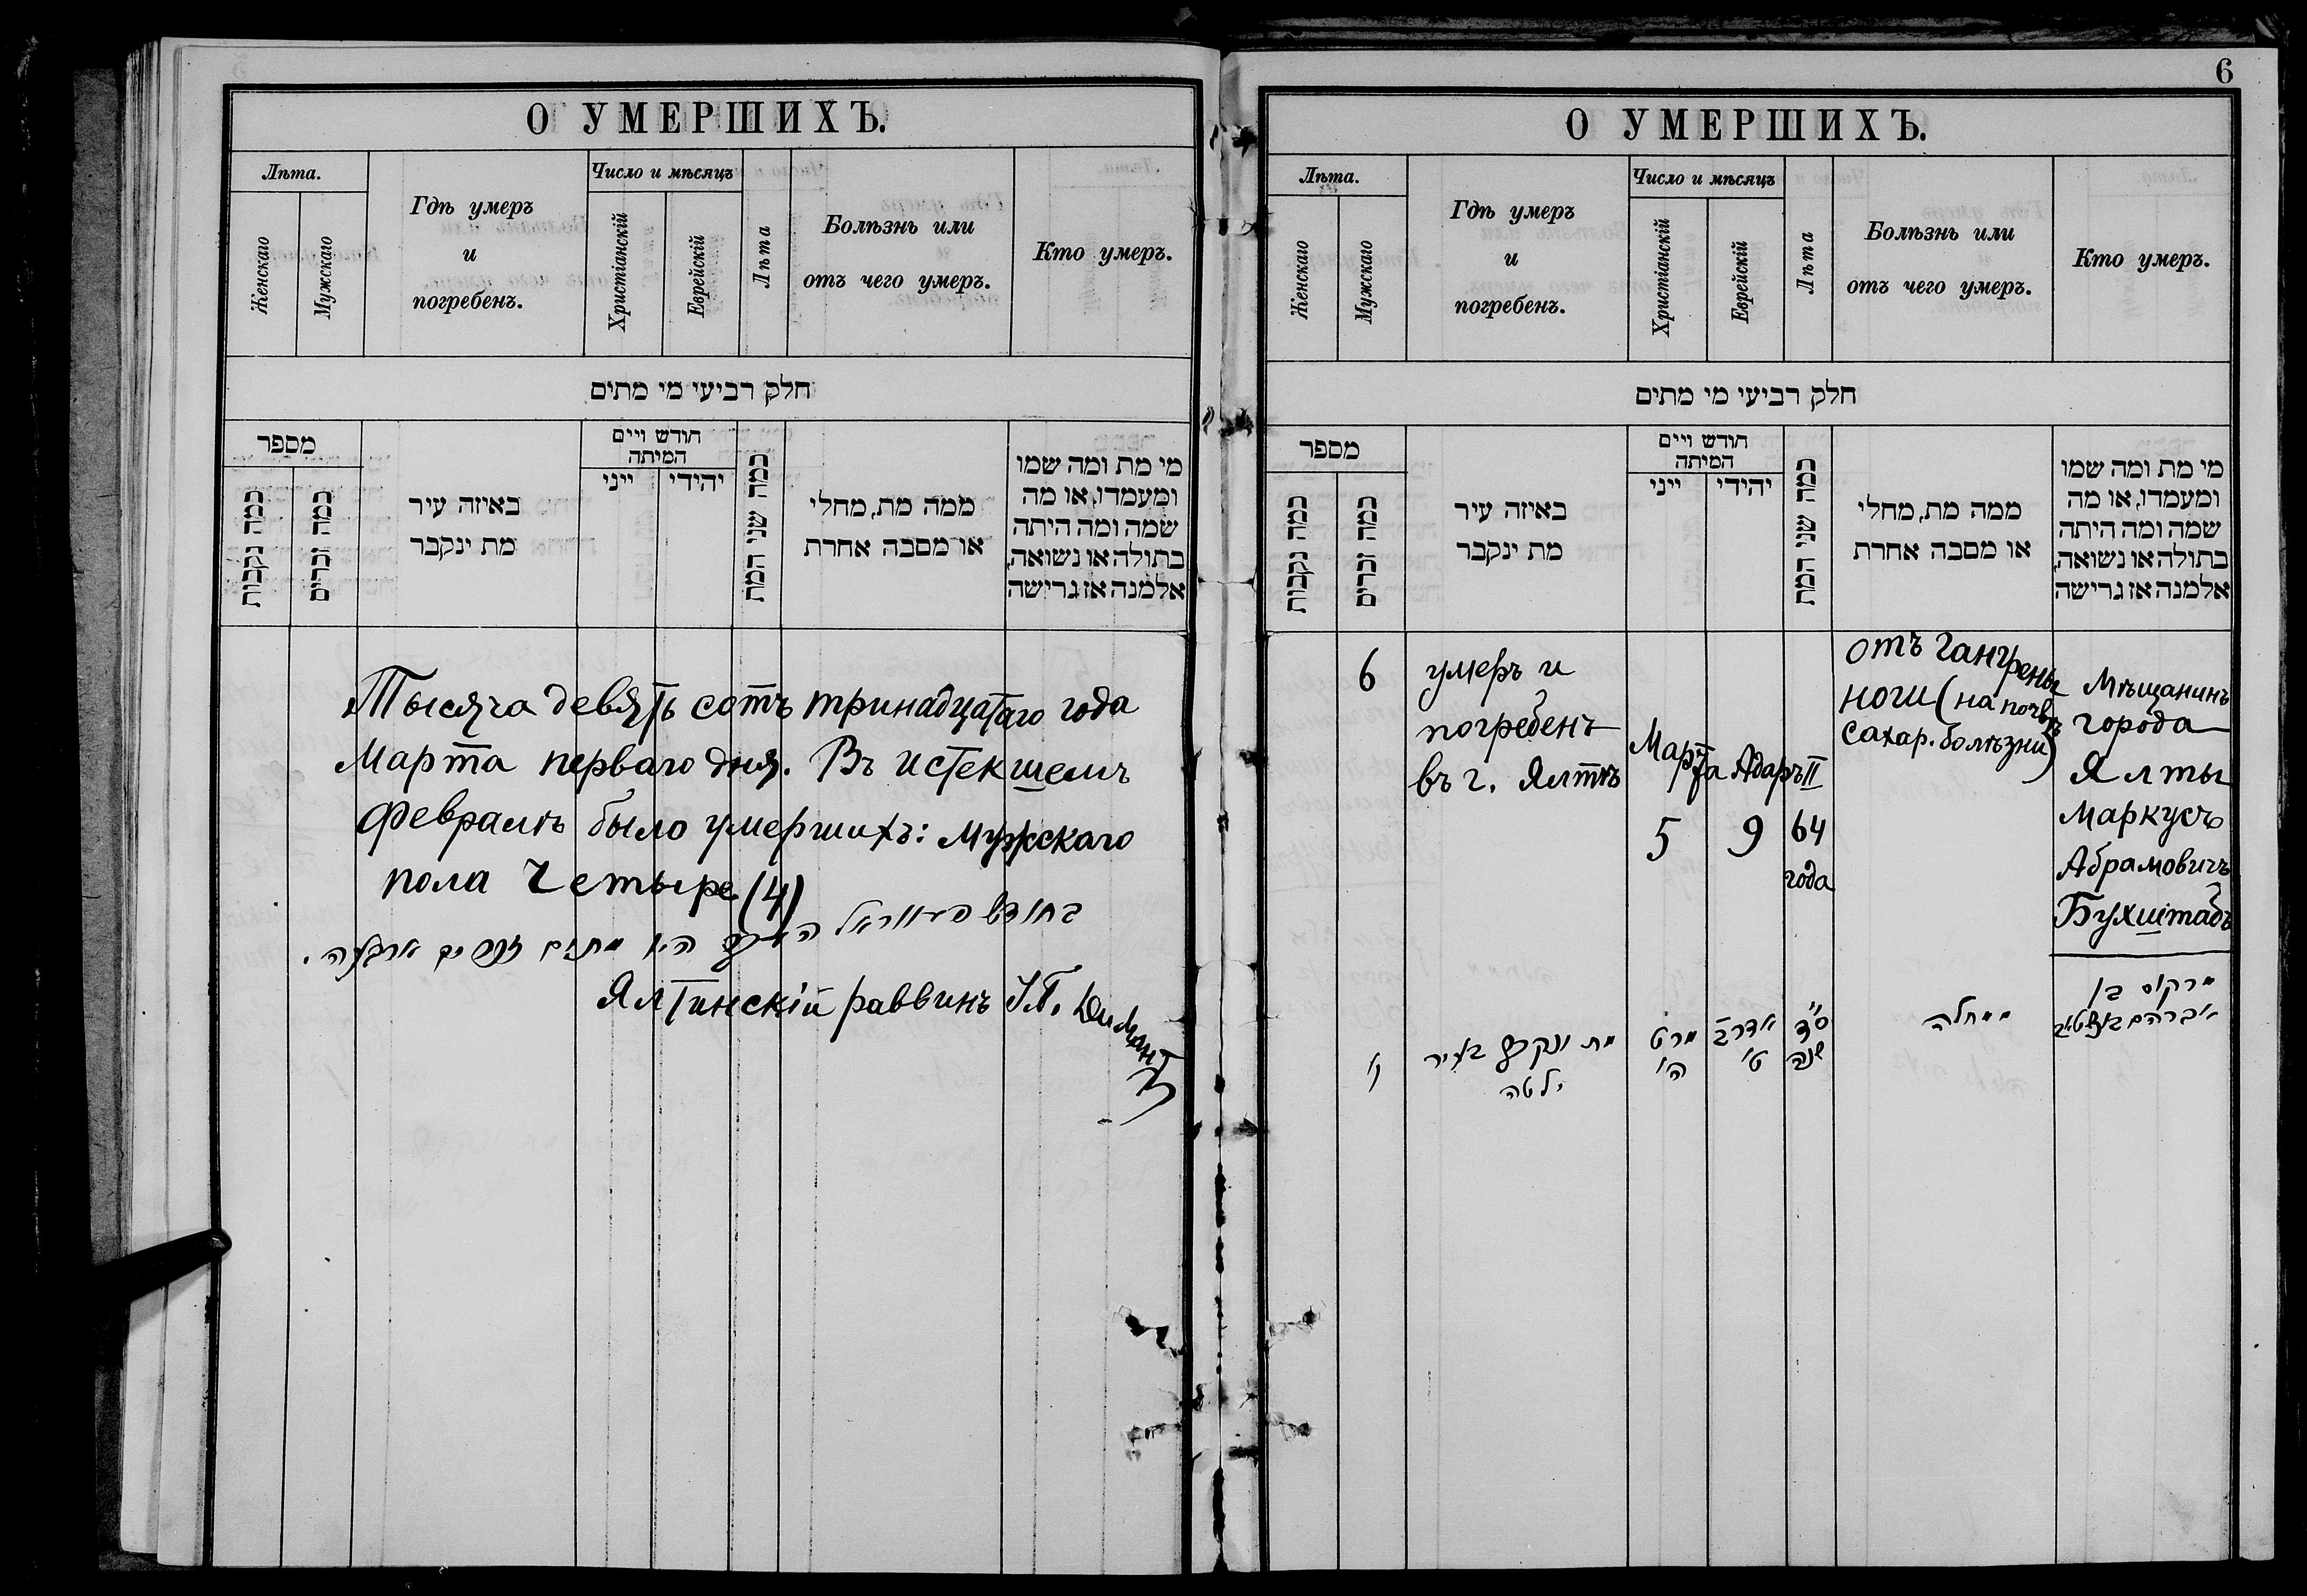 О УМЕРШИХЪ.
Лѣта.
Женскаго
Мужскаго
Гдѣ умеръ
и
погребенъ.
Число и мѣсяцъ
Христіанскій
Еврейскій
Лѣта
Болѣзнь или
отъ чего умеръ.
Кто умеръ.
חלק רביעי מי מתים
מספר
כמה נקבות
כמה זכרים
באיזה עיר
מת ינקבר
חודש ויים
המיתה
ייני
יהודי
כמה שני המת
ממה מת, מחלי
או מסבה אחרת
מי מת ומה שמו
ומעמדו, או מה
שמה ומה היתה
בתולה או נשואה,
אלמנה אז גרישה
Тысяча девять сотъ тринадцатаго года
Марта перваго дня. Въ истекшемъ
Февралѣ было умершихъ: мужскаго
пола четыре (4)
בחודש פעווראל
היו מתים זכרים ארבעה.
Ялтинскій раввинъ
6
О УМЕРШИХЪ.
Лѣта.
Женскаго
Мужскаго
Гдѣ умеръ
и
погребенъ.
Число и мѣсяцъ
Христіанскій
Еврейскій
Лѣта
Болѣзнь или
отъ чего умеръ.
Кто умеръ.
חלק רביעי מי מתים
מספר
כמה נקבות
כמה זכרים
באיזה עיר
מת ינקבר
חודש ויים
המיתה
ייני
יהודי
כמה שני המת
ממה מת, מחלי
או מסבה אחרת
מי מת ומה שמו
ומעמדו, או מה
שמה ומה היתה
בתולה או נשואה,
אלמנה אז גרישה
6
умеръ и
погребенъ
въ г. Ялтѣ
Марта
5
Адаръ II
9
64
года
отъ гангрены
ноги (на почвѣ
сахар. болѣзни)
Мѣщанинъ
города
Ялты
Маркусъ
Абрамовичъ
Бухштабъ
ו'
מת ונקבר בעיר
ילטה
מרט
ה'
אדר ב
ט'
ס"ד
שנה
ממחלה
מרקוס בן
אברהם